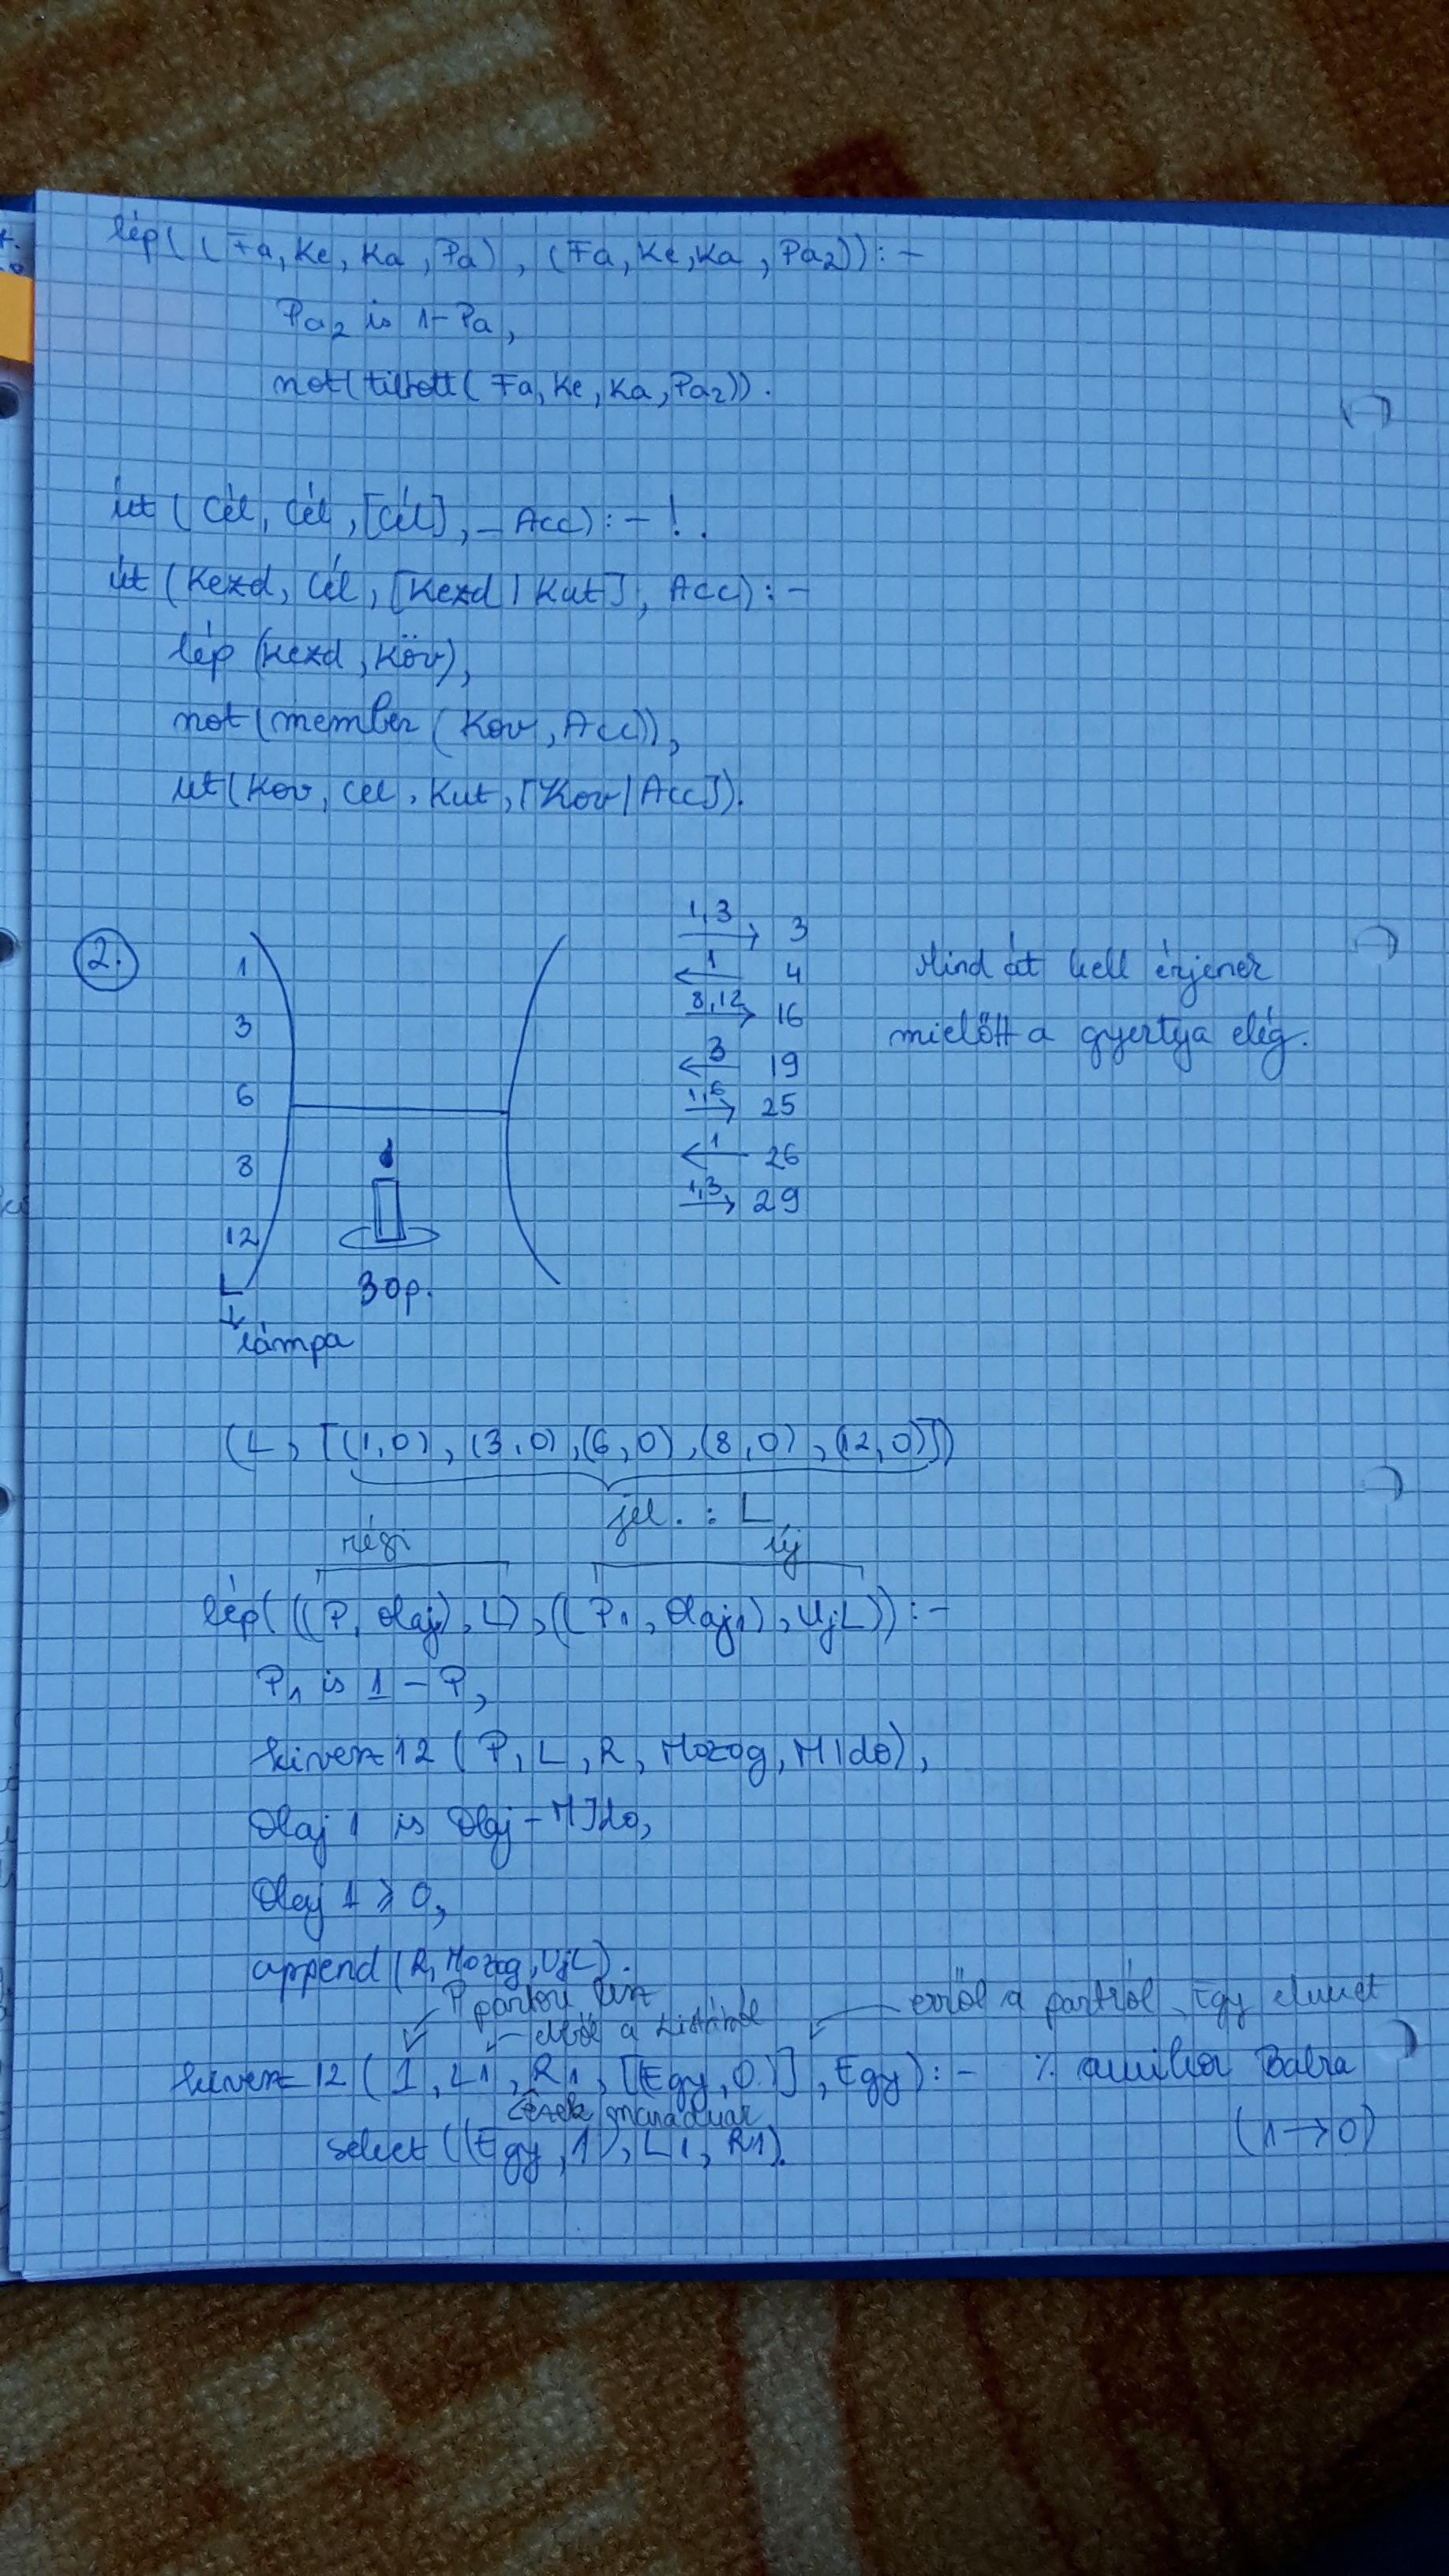 lép((Fa, Ke, Ka, Pa), (Fa, Ke, Ka, Pa2)):-
Pa2 is 1-Pa,
not(tiltott(Fa, Ke, Ka, Pa2)).
út(Cél, Cél, [Cél], _Acc):-!.
út(Kezd, Cél, [Kezd|Kut], Acc):-
lép(Kezd, Köv),
not(member(Kov, Acc)),
ut(Kov, Cel, Kut, [Kov|Acc]).
2.
1
3
6
8
12
L
lámpa
30p.
1,3 → 3
← 1 4
8,12 → 16
← 3 19
1,6 → 25
← 1 26
1,3 → 29
Mind át kell érjenek
mielőtt a gyertya elég.
(L, [(1,0), (3,0), (6,0), (8,0), (12,0)])
jel. : L
régi
új
lép(((P, Olaj), L), ((P1, Olaj1), UjL)):-
P1 is 1-P,
kivesz12(P, L, R, Mozog, MIdo),
Olaj1 is Olaj-MIdo,
Olaj1 ≥ 0,
append(R, Mozog, UjL).
P parton lesz
ebből a listából
erről a partról egy elemet
kivesz12(1, L1, R1, [(Egy,0)], Egy):- % amikor Balra
ezek maradnak
(1→0)
select((Egy,1), L1, R1).